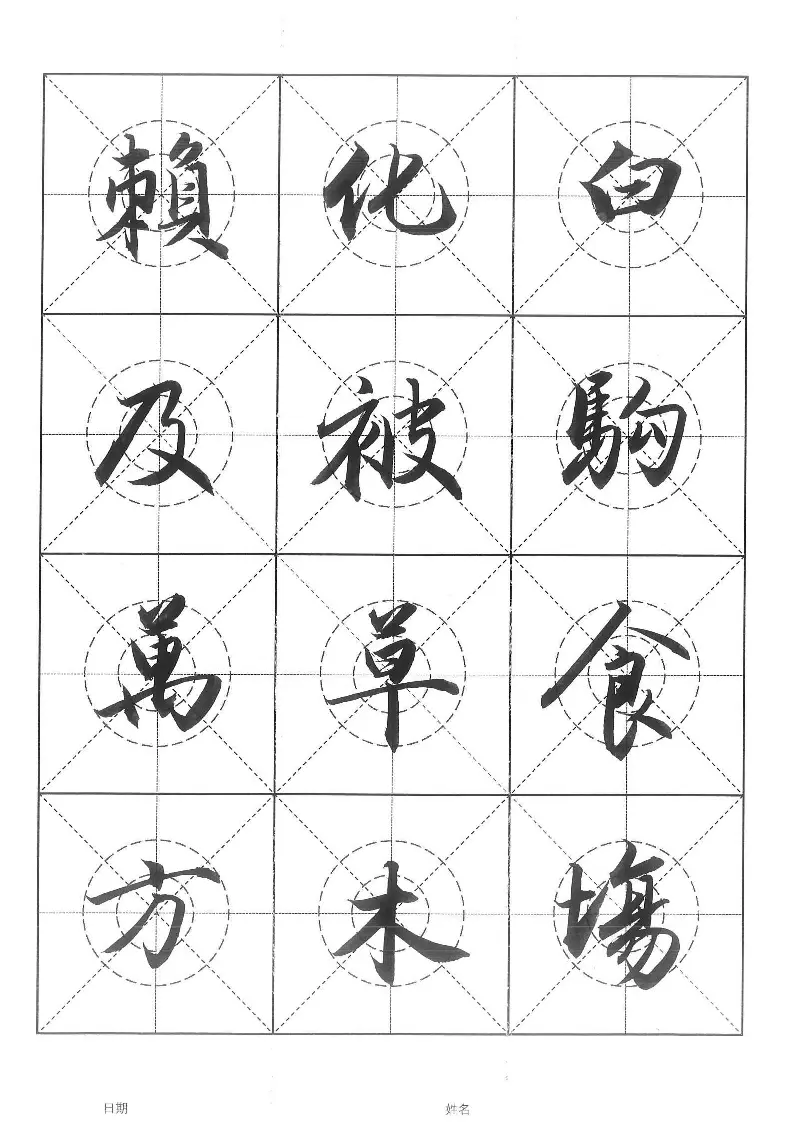 白駒食塲
化被草木
賴及萬方
日期
姓名